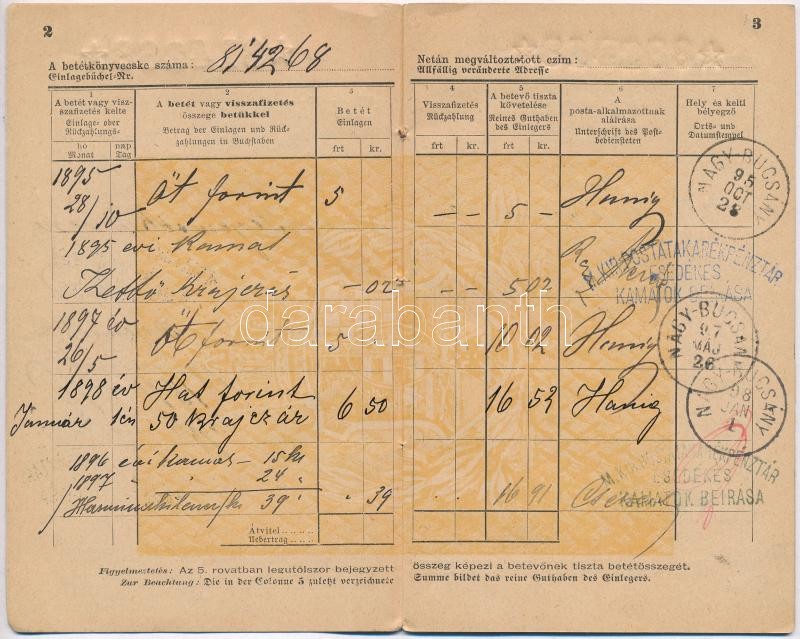 2
A betétkönyvecske száma : 814268
Einlagebüchel-Nr.
1
A betét vagy visz-
szafizetés kelte
Einlage- oder
Rückzahlungs-
hó nap
Monat Tag
2
A betét vagy visszafizetés
összege betükkel
Betrag der Einlagen und Rück-
zahlungen in Buchstaben
3
Betét
Einlagen
frt kr.
1895
28/10 Öt forint 5
1895 évi Kamat
Kettő krajczár — 02
1897 év
26/5 Öt forint 5
1898 év Hat forint
Január 1én 50 Krajczár 6 50
1896 évi kamat — 15 kr
1897 " " 24 "
39 " 39
Átvitel
Uebertrag
Figyelmeztetés: Az 5. rovatban legutólszor bejegyzett
Zur Beachtung: Die in der Colonne 5 zuletzt verzeichnete
3
Netán megváltoztatott czim :
Allfällig veränderte Adresse
4
Visszafizetés
Rückzahlung
frt kr.
5
A betevő tiszta
követelése
Reines Guthaben
des Einlegers
frt kr.
6
A
posta-alkalmazottnak
aláírása
Unterschrift des Post-
bediensteten
7
Hely és kelti
bélyegző
Orts- und
Datumstempel
— — 5 — Hunig
NAGY-BUCSÁNY
95
OCT
28
— — 5 02
M. KIR. POSTATAKARÉKPÉNZTÁR
ESEDÉKES
KAMATOK BEIRÁSA
10 02 Hunig
NAGY-BUCSÁNY
97
MAJ
26
16 52 Hunig
NAGY-BUCSÁNY
98
JAN
1
16 91
M. KIR. POSTATAKARÉKPÉNZTÁR
ESEDÉKES
KAMATOK BEIRÁSA
összeg képezi a betevőnek tiszta betétösszegét.
Summe bildet das reine Guthaben des Einlegers.
darabanth